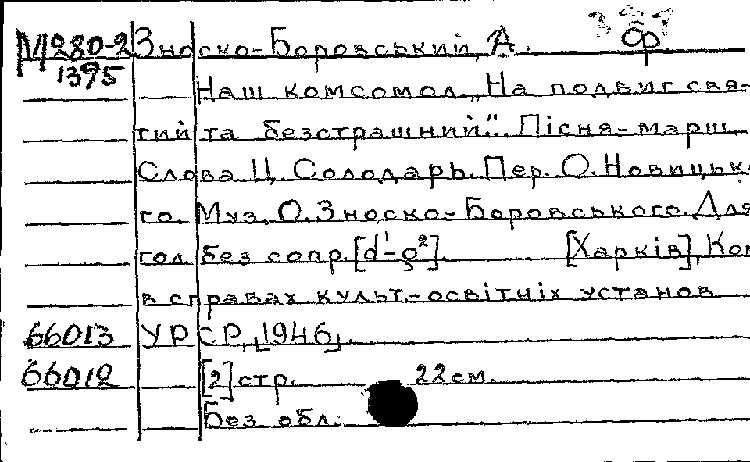 М280-2 Зноско-Боровський, А. бр
1395 Наш комсомол. „На подвиг свя-
тий та безстрашний". Пісня-марш.
Слова Ц. Солодарь. Пер. О. Новицько-
го. Муз. О. Зноско-Боровського. Для
гол. без сопр. [d¹-g²]. [Харків], Ком.
в справах культ.-освітніх установ
66013 УРСР, [1946].
66012 [2] стр. 22 см.
Без обл.